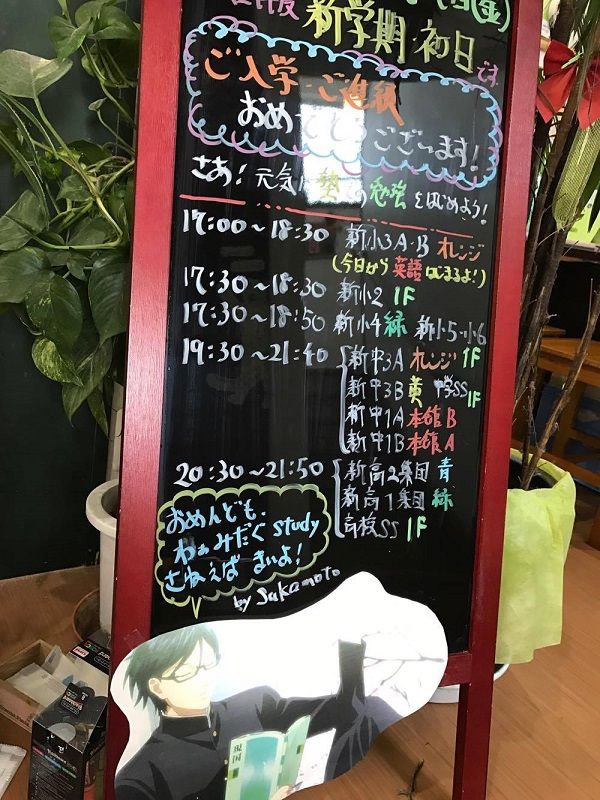 新学期・初日です
ご入学・ご進級
おめでとうございます!
さあ!元気に 勉強をはじめよう!
17:00〜18:30 新小3A・B オレンジ
(今日から英語はじまるよ!)
17:30〜18:30 新小2 1F
17:30〜18:50 新小4 緑 新小5・小6
19:30〜21:40 新中3A オレンジ 1F
新中3B 黄 中学SS 1F
新中1A 本館B
新中1B 本館A
20:30〜21:50 新高2集団 青
新高1集団 緑
高校SS 1F
おめんども、
わぁみだぐ study
さねえば まいよ!
by Sakamoto
現国